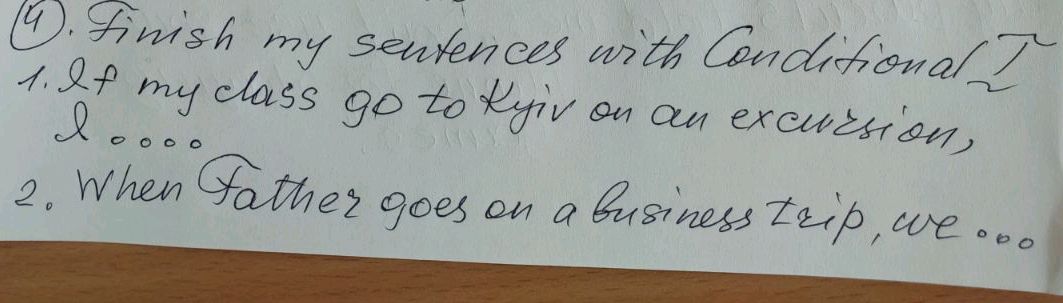 4). Finish my sentences with Conditional I
1. If my class go to Kyiv on an excursion,
I ....
2. When Father goes on a business trip, we ...